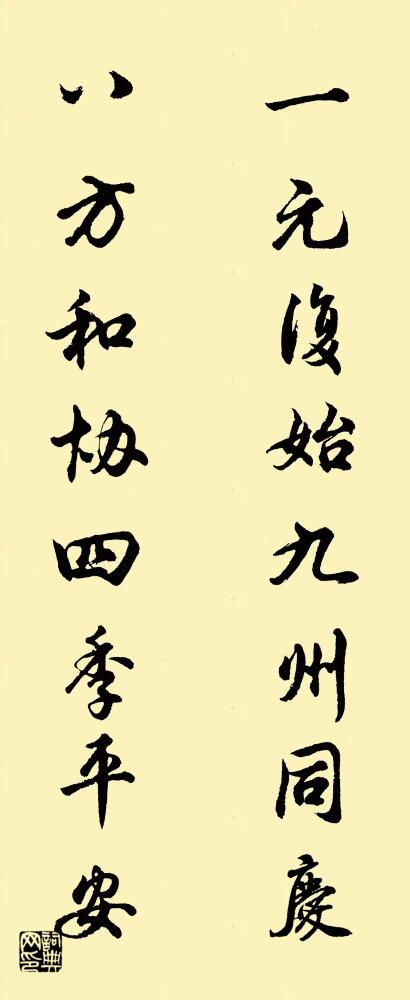 一元復始九州同慶
八方和协四季平安
詞典網印